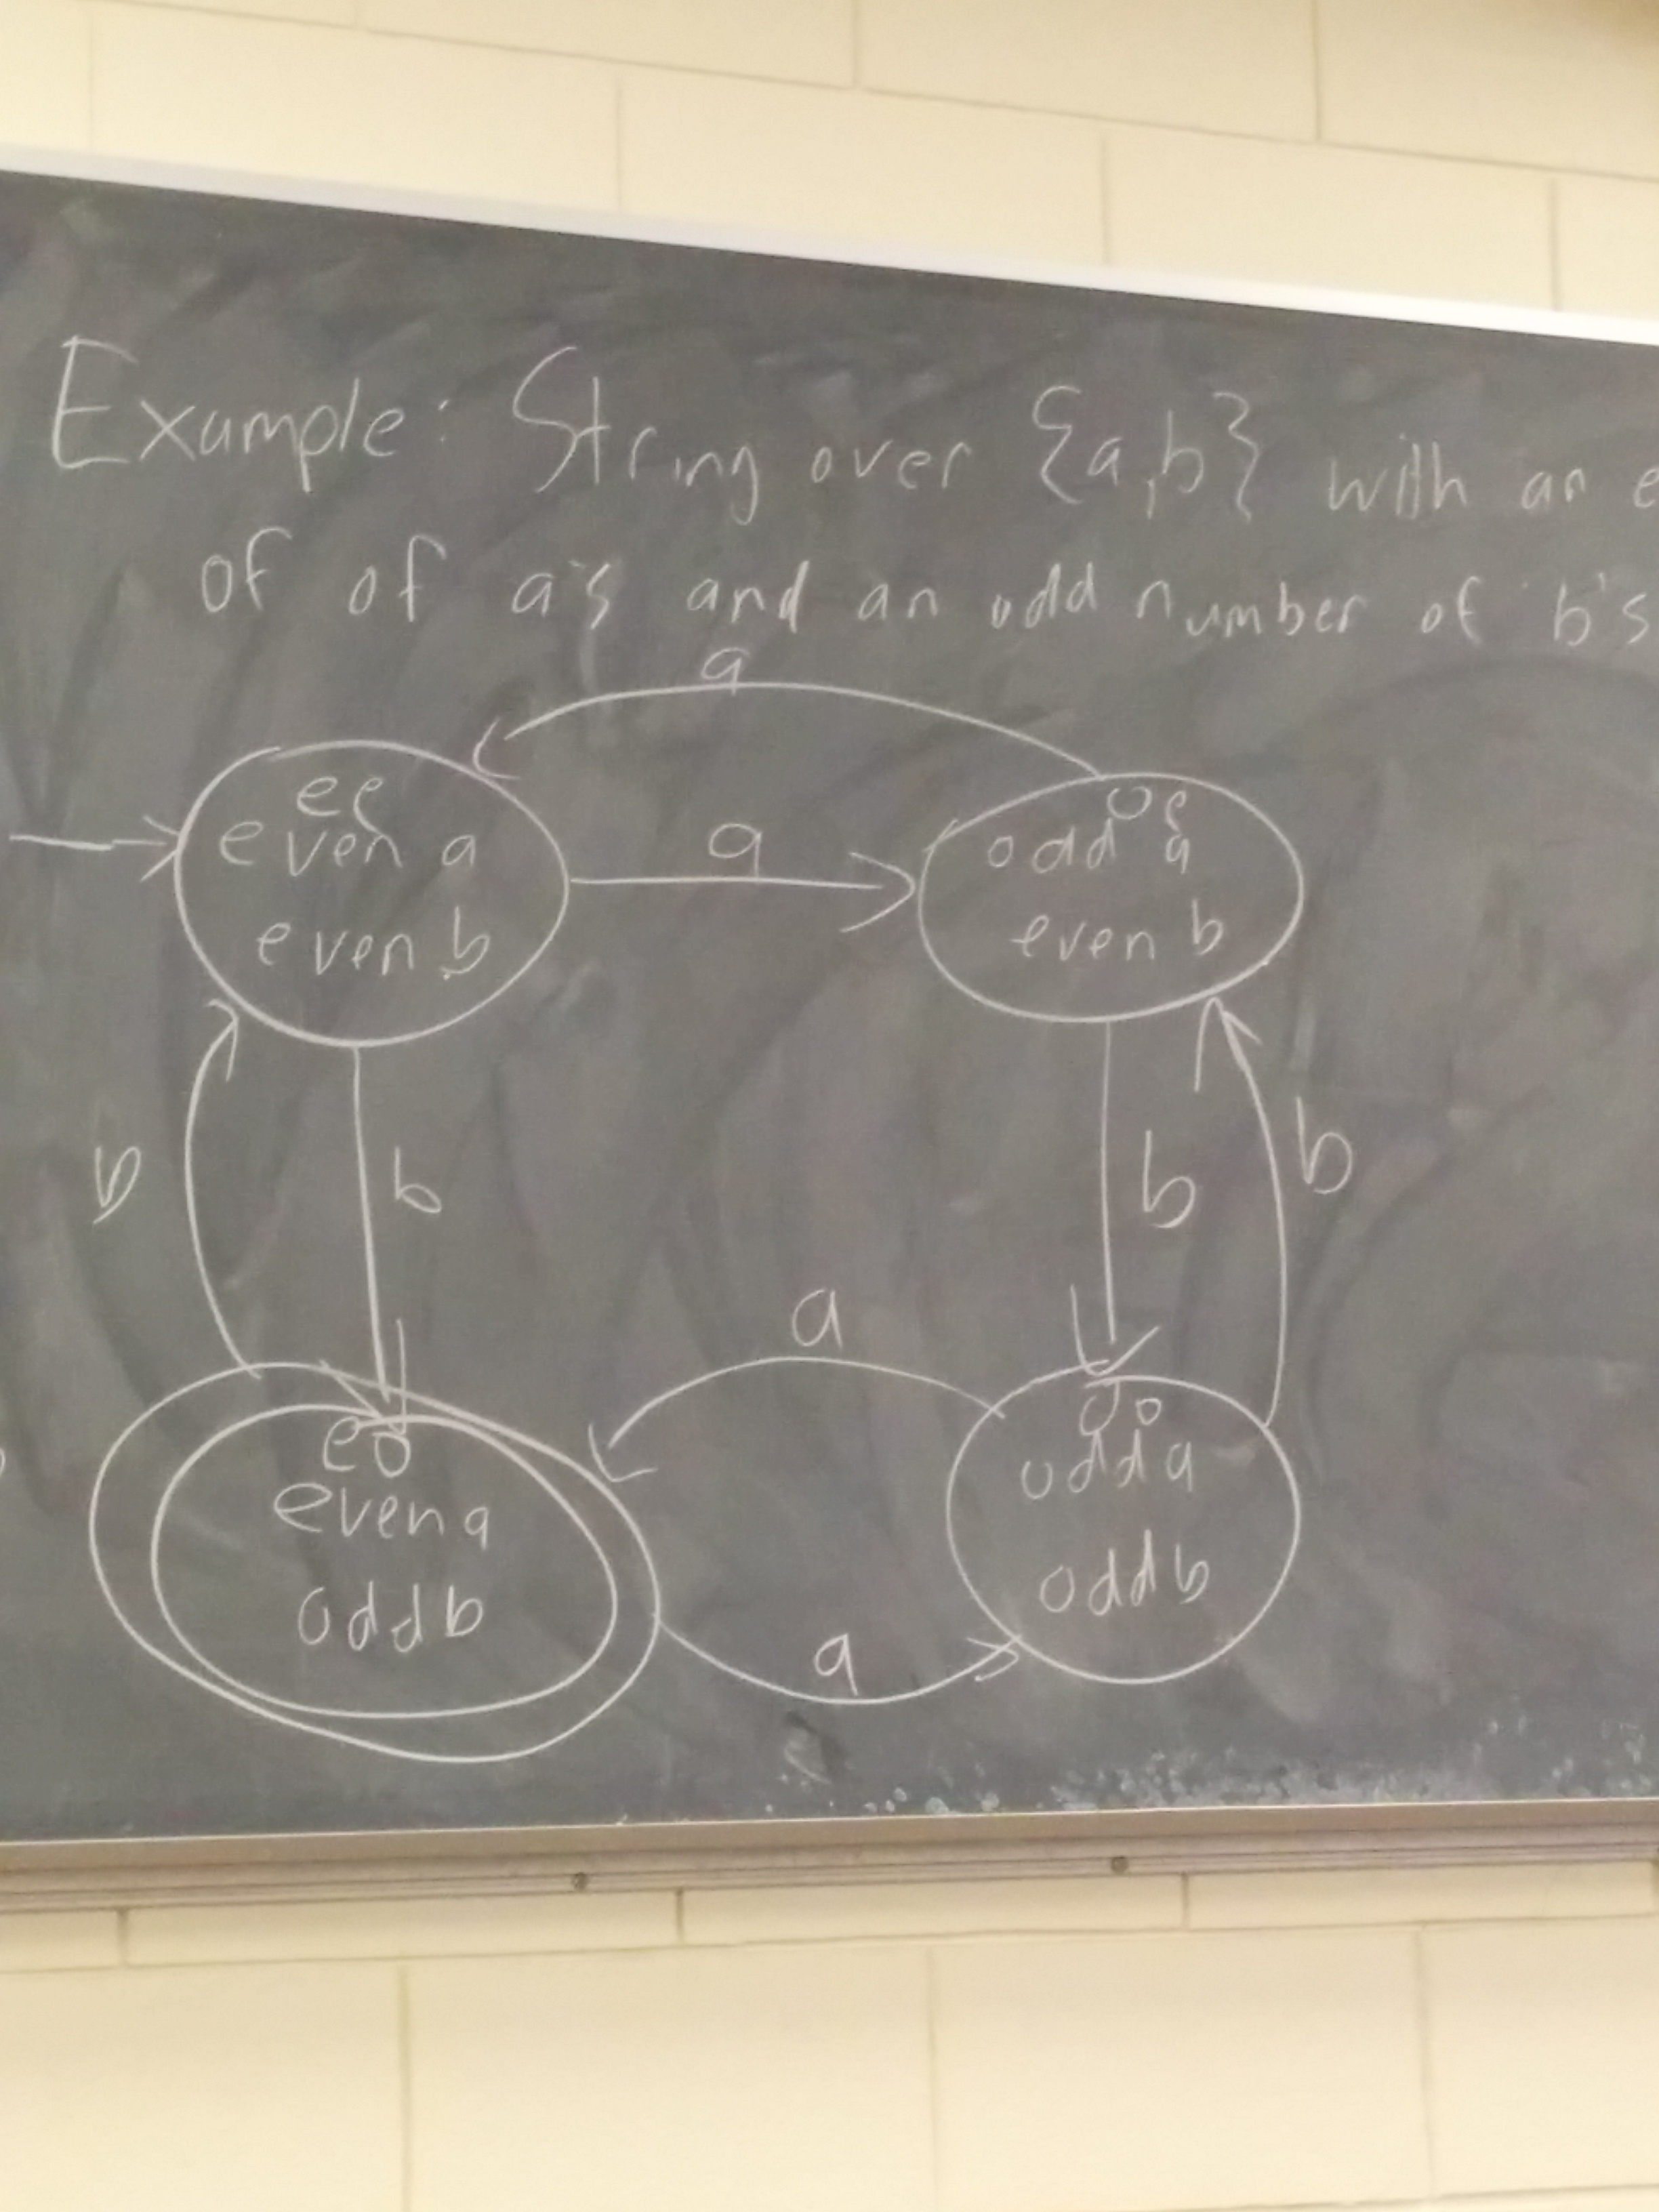 Example: String over {a,b} with an e
of of a's and an odd number of b's
a
ee
even a
even b
a
oe
odd a
even b
b
b
b
b
a
eo
even a
odd b
oo
odd a
odd b
a